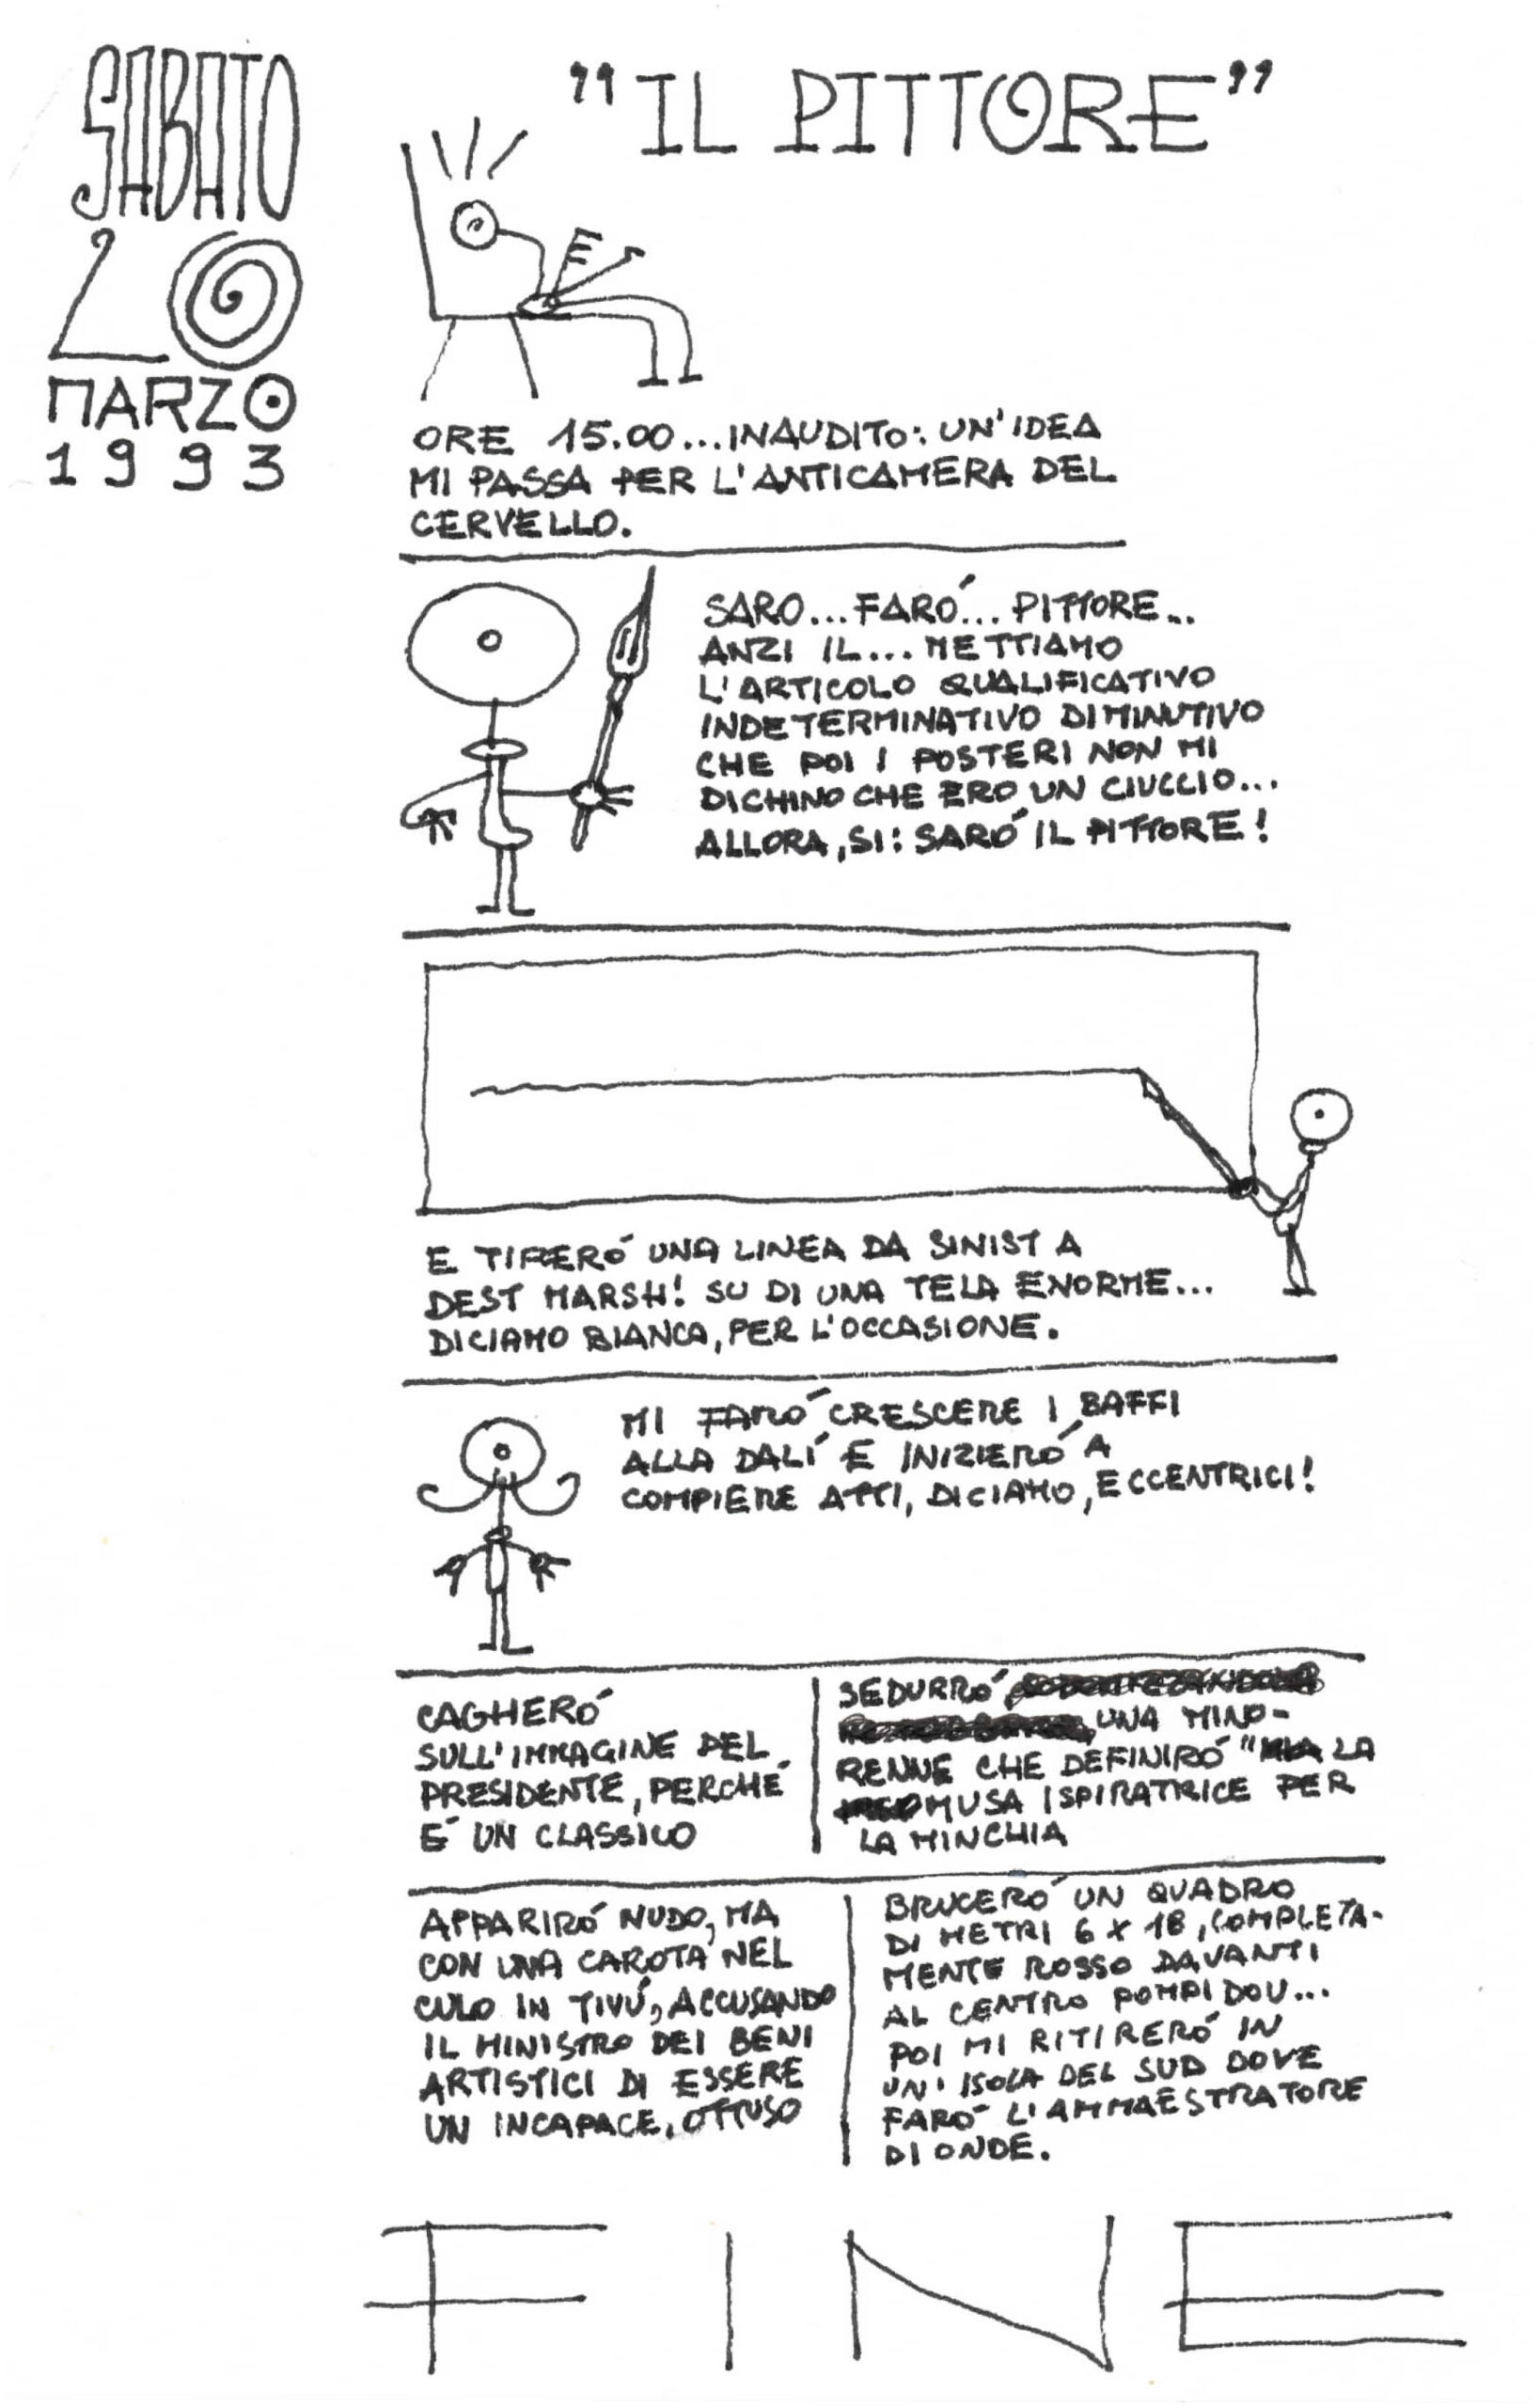 SABATO
20
MARZO
1993
"IL PITTORE"
ORE 15.00...INAUDITO: UN'IDEA
MI PASSA PER L'ANTICAMERA DEL
CERVELLO.
SARO...FARÓ...PITTORE...
ANZI IL...METTIAMO
L'ARTICOLO QUALIFICATIVO
INDETERMINATIVO DIMINUTIVO
CHE POI I POSTERI NON MI
DICHINO CHE ERO UN CIUCCIO...
ALLORA, SI: SARÓ IL PITTORE!
E TIRERÓ UNA LINEA DA SINIST A
DEST MARSH! SU DI UNA TELA ENORME...
DICIAMO BIANCA, PER L'OCCASIONE.
MI FARÓ CRESCERE I BAFFI
ALLA DALÍ E INIZIERÓ A
COMPIERE ATTI, DICIAMO, ECCENTRICI!
CAGHERÓ
SULL'IMMAGINE DEL
PRESIDENTE, PERCHÉ
É UN CLASSICO
SEDURRÓ,
UNA MINO-
RENNE CHE DEFINIRÓ " LA
MUSA ISPIRATRICE PER
LA MINCHIA
APPARIRÓ NUDO, MA
CON UNA CAROTA NEL
CULO IN TIVÚ, ACCUSANDO
IL MINISTRO DEI BENI
ARTISTICI DI ESSERE
UN INCAPACE, OTTUSO
BRUCERÓ UN QUADRO
DI METRI 6 X 18, COMPLETA-
MENTE ROSSO DAVANTI
AL CENTRO POMPIDOU...
POI MI RITIRERÓ IN
UN' ISOLA DEL SUD DOVE
FARÓ L'AMMAESTRATORE
DI ONDE.
FINE